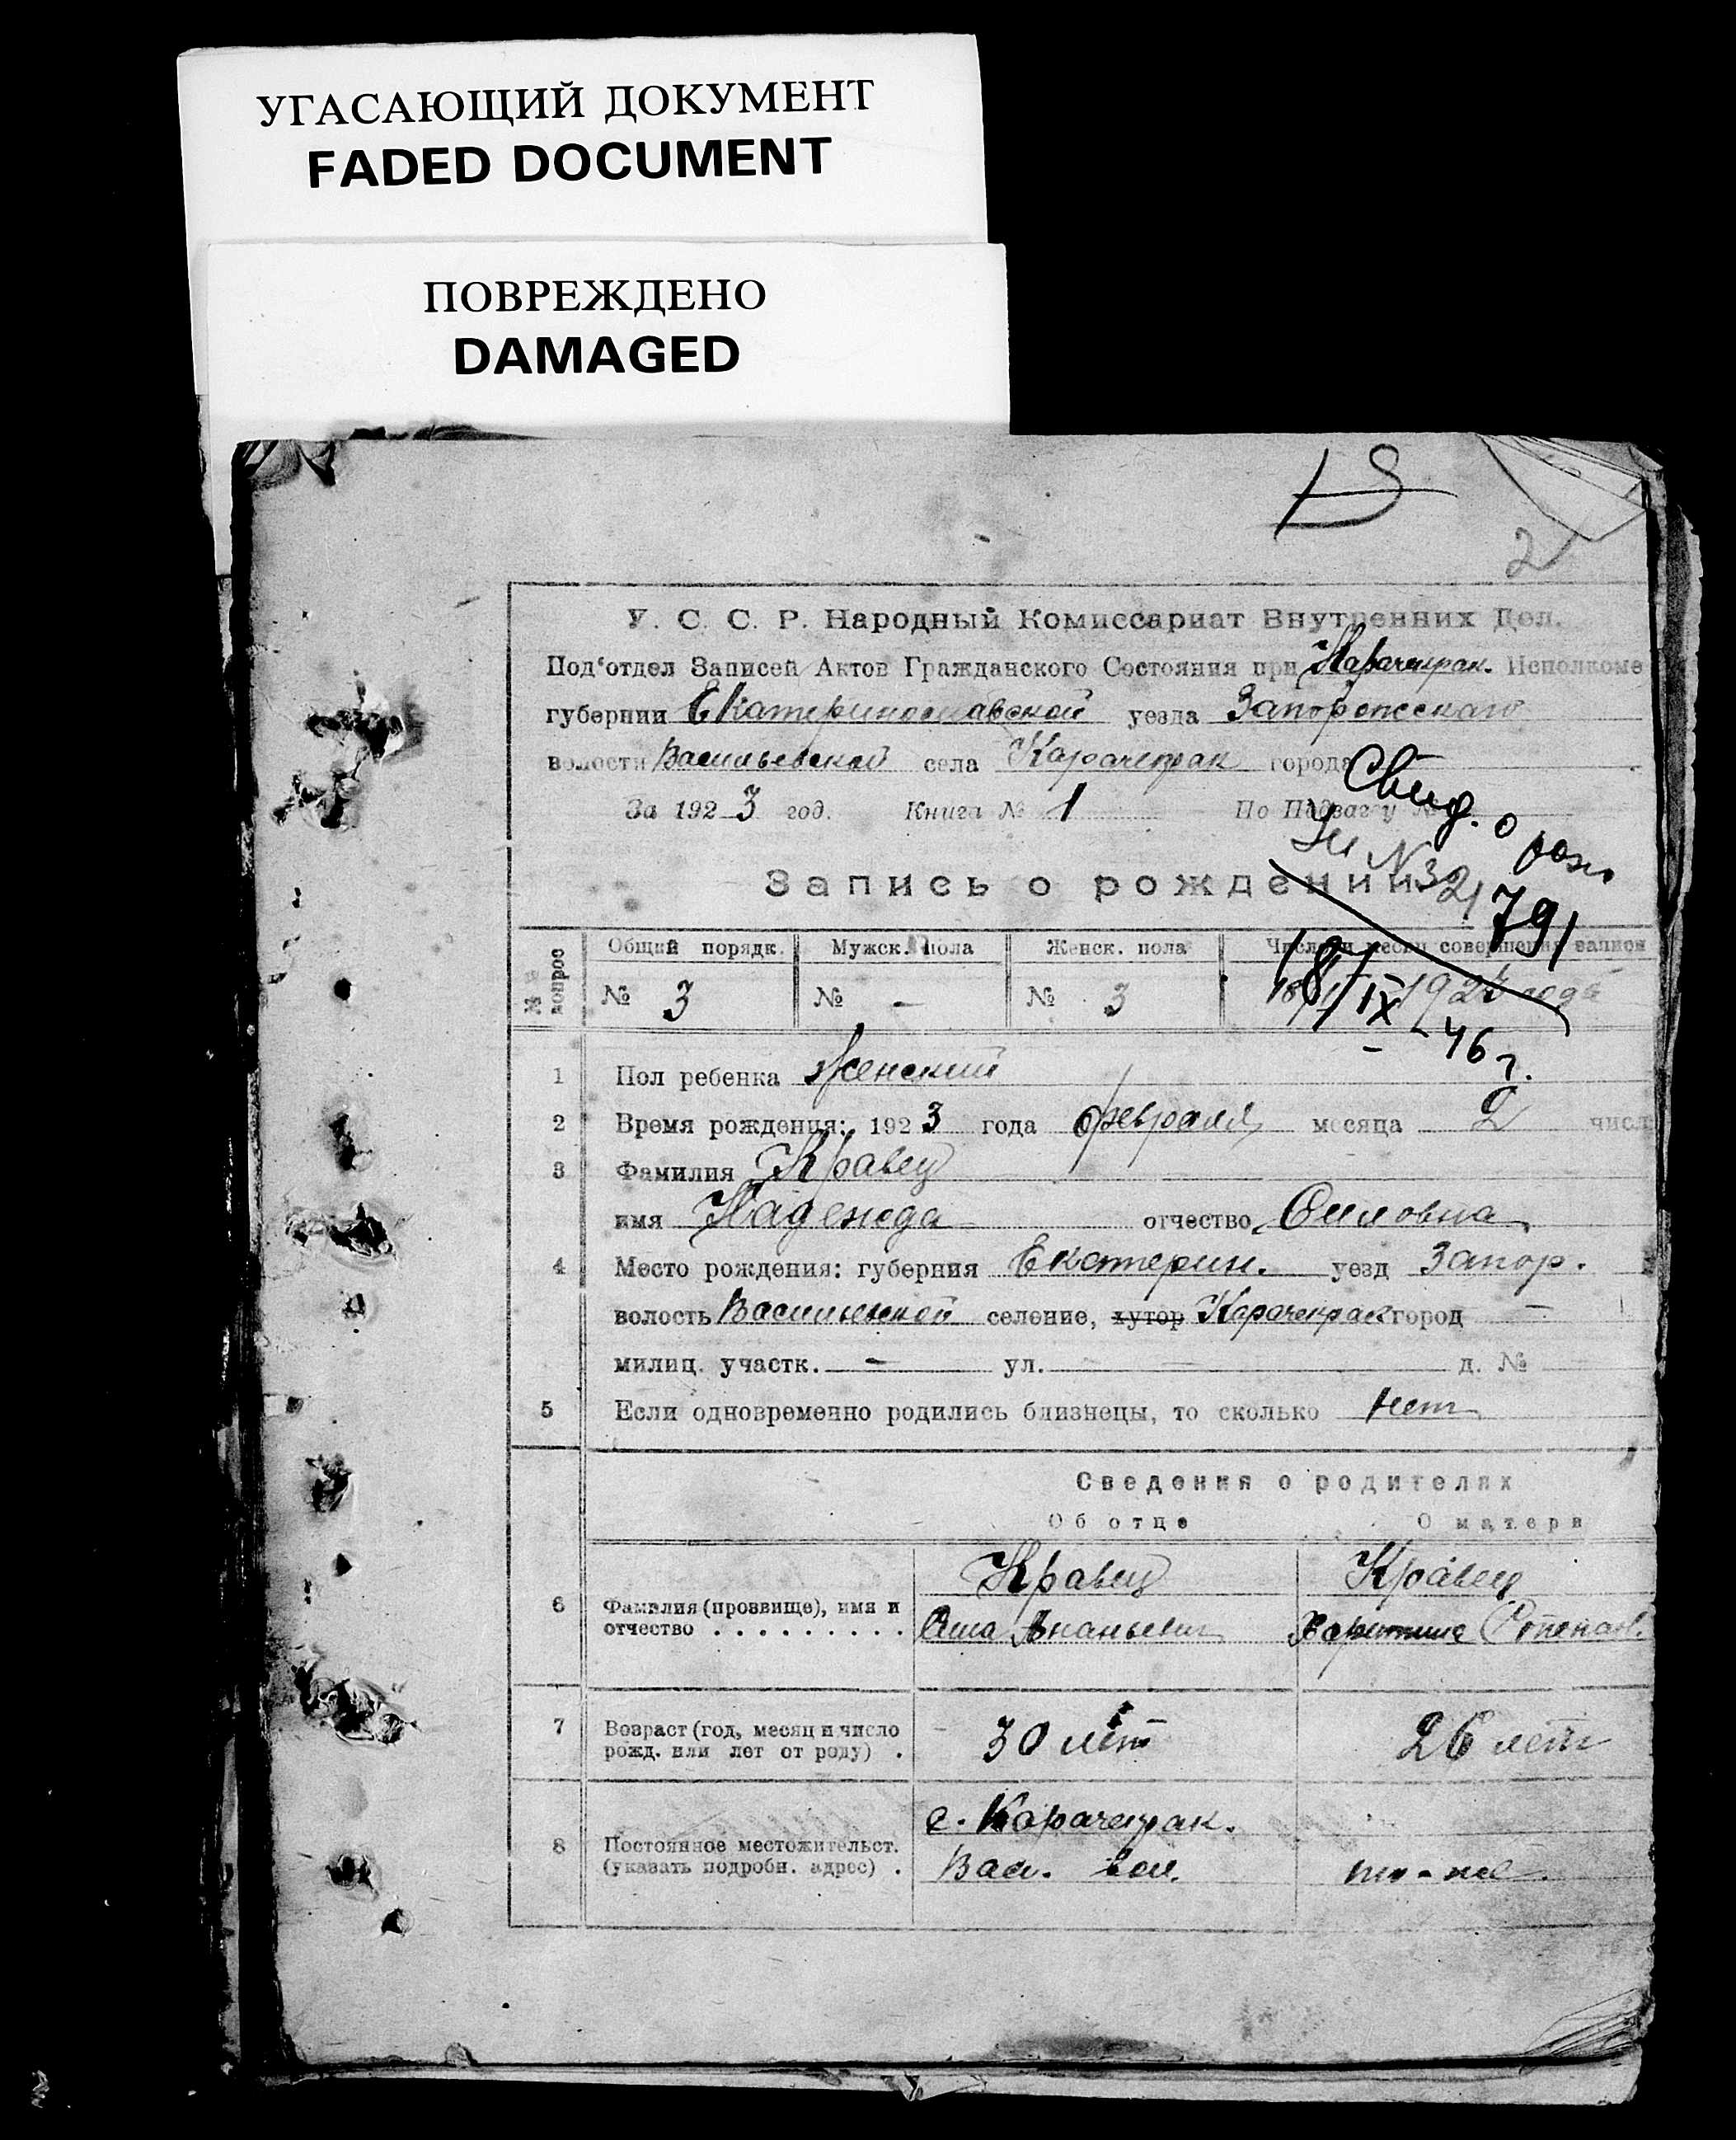 УГАСАЮЩИЙ ДОКУМЕНТ
FADED DOCUMENT
ПОВРЕЖДЕНО
DAMAGED
2
У. С. С. Р. Народный Комиссариат Внутренних Дел.
Под'отдел Записей Актов Гражданского Состояния при Карачекрак. Исполкоме
губернии Екатеринославской уезда Запорожского
волости Васильевской села Карачекрак города
За 1923 год. Книга № 1 По Подзагу
Свид. о рож.
№ 32
791
Запись о рождении
№№ вопрос
Общий порядк. Мужск. пола Женск. пола Число и месяц совершения записи
№ 3 № — № 3 18/IX 192 года
18/IX - 46 г.
1 Пол ребенка Женский
2 Время рождения: 1923 года февраля месяца 2 числ
3 Фамилия Кравец
имя Надежда отчество Силовна
4 Место рождения: губерния Екатерин. уезд Запор.
волость Васильевской селение, хутор Карачекрак город —
милиц. участк. — ул. — д. № —
5 Если одновременно родились близнецы, то сколько нет
Сведения о родителях
Об отце О матери
Кравец Кравец
6 Фамилия (прозвище), имя и отчество . . . . . . . . .
Сила Ананьевич Харитина Степан.
7 Возраст (год, месяц и число рожд. или лет от роду) .
30 лет 26 лет
8 Постоянное местожительст. (указать подробн. адрес) .
с. Карачекрак.
Вас. вол. то-же